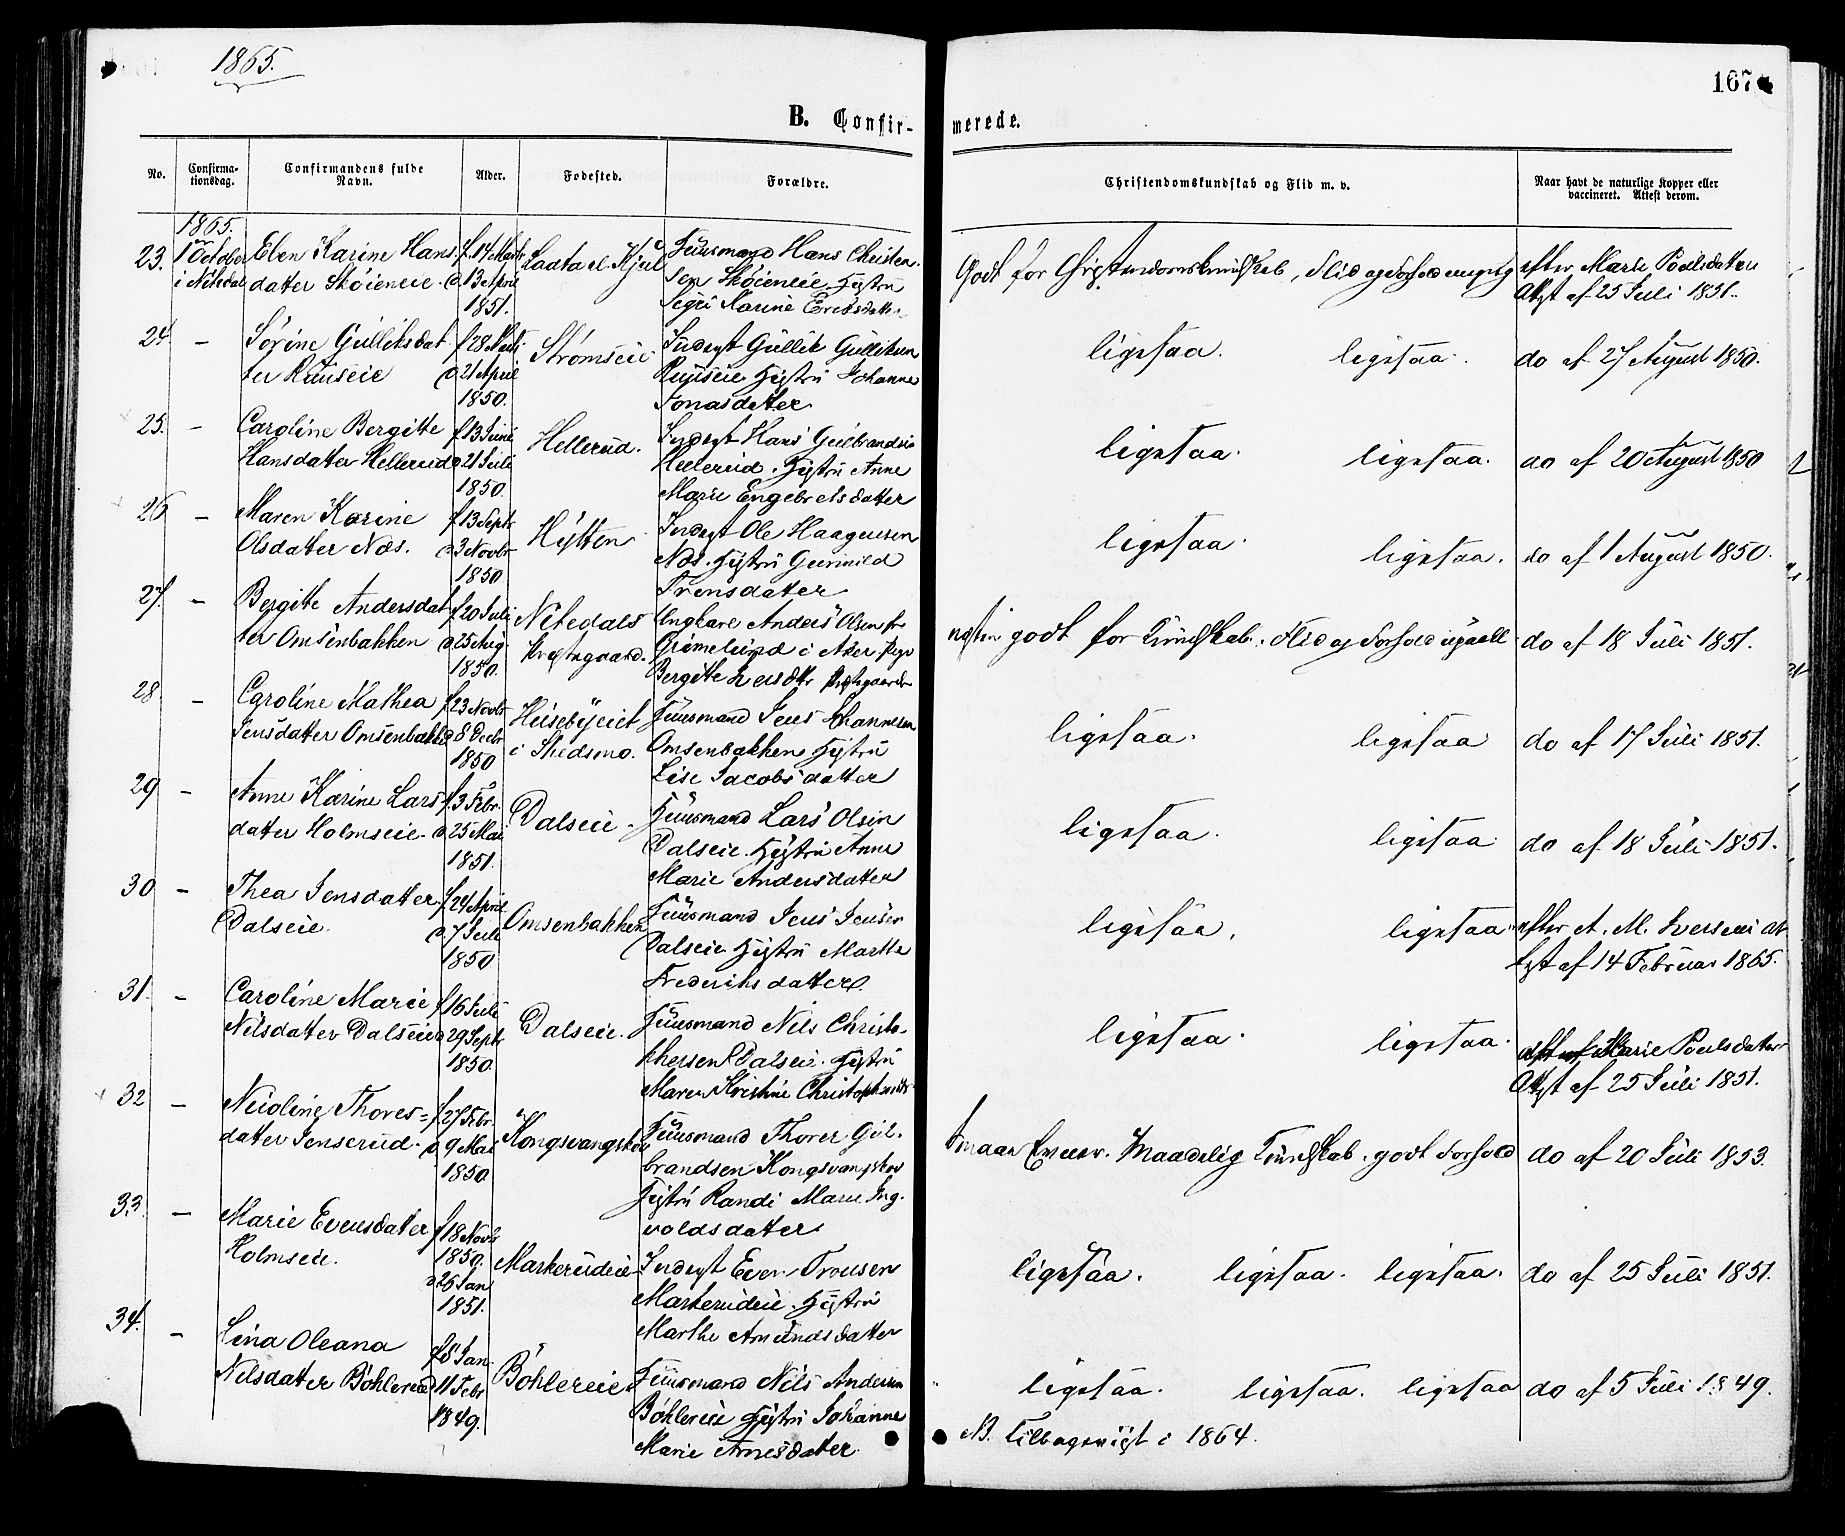 1865.
167
B. Confir-
merede.
No.
Confirma-
tionsdag.
Confirmandens fulde
Navn.
Alder.
Fødested.
Forældre.
Christendomskundskab og Flid m. v.
Naar havt de naturlige Kopper eller
vaccineret. Attest derom.
1865.
23. 1 October Elen Karine Hans f. 14 Marts Huusmand Hans Christen-
i Nitedal datter Skøieneie. d. 13 April sen Skøieneie. Hustru
1851. Karine Ericksdatter
Godt for Christendomskundskab, Flid og Forhold
efter Marie Poulsdatters
Attst af 25 Juli 1851.
24. – Sørine Gulliksdat f 28 Marts Strømseie Inderst Gullik Gulliksen
ter Ruuseie d 21 April Ruuseie Hustru Johanne
1850. Jonasdatter
ligesaa. ligesaa. do af 27 August 1850.
25. – Caroline Bergitte f 13 Juni Hellerud. Inderst Hans Gulbrandsen
Hansdatter Hellerud d 21 Juli Hellerud. Hustru Anne
1850. Marie Engebretsdatter
ligesaa. ligesaa. do af 20 August 1850
26 – Maren Karine f 13 Septr Hytten Inderst Ole Haagensen
Olsdatter Næs. d 3 Novbr Næs. Hustru Gunnild
1850 Trensdatter
ligesaa. ligesaa. do af 1 August 1850.
27. – Bergitte Andersdat f 20 Juli Nitedals Ungkarl Anders Olsen fra
ter Omsenbakken d 25 Aug Præstegaard. Grimelund i Aker Pige
1850. Bergitte Larsdtr Præstegaarden
næsten godt for Kundskab. Flid og Forhold do af 18 Juli 1851.
28. – Caroline Mathea f 23 Novbr Huusebyeiet Huusmand Jens Johannesen
Jensdatter Omsenbakke d 8 Decbr i Skedsmo. Omsenbakken Hustru
1850 Lise Jacobsdatter
ligesaa. ligesaa do af 17 Juli 1851.
29 – Anne Karine Lars f. 3 Febr. Dalseie. Huusmand Lars Olsen
datter Holmseie. d. 25 Mai Dalseie. Hustru Anne
1851. Marie Andersdatter
ligesaa. ligesaa do af 18 Juli 1851.
30 – Thea Jensdatter f. 24 April Omsenbakken Huusmand Jens Jensen
Dalseie. d. 7 Juli Dalseie Hustru Marthe
1850 Frederiksdatter.
ligesaa. ligesaa efter A. M. Iversens at
test af 14 Februar 1865.
31. – Caroline Marie f 16 Juli Dalseie. Huusmand Nils Christo-
Nilsdatter Dalseie d 29 Septr phersen Dalseie. Hustru
1850. Maren Kristine Christophersdtr
ligesaa. ligesaa. Marie Poulsdatter
Attst af 25 Juli 1851.
32 – Nicoline Thores= f. 27 Febr. Kongsvangskov Huusmand Thorer Gul-
datter Jenserud. d. 9 Mai brandsen Kongsvangskov
1850 Hustru Randi Marie Ing-
voldsdatter
smaae Evner. Maadelig Kundskab. godt Forhold do af 20 Juli 1853.
33. – Marie Evensdatter f 18 Novbr Markerudeie Inderst Even Tronsen
Holmseie. 1850. Markerudeie. Hustru
d 26 Jan Marthe Amundsdatter
1851.
ligesaa. ligesaa. ligesaa. do af 25 Juli 1851.
34. – Lina Oleana f 8 Jan. Bøhlereie Huusmand Nils Andersen
Nilsdatter Bøhlereie d 11 Febr Bøhlereie Hustru Johanne
1849. Marie Arnesdatter
ligesaa. ligesaa. ligesaa do af 5 Juli 1849.
NB. Tilbagevigt i 1864.